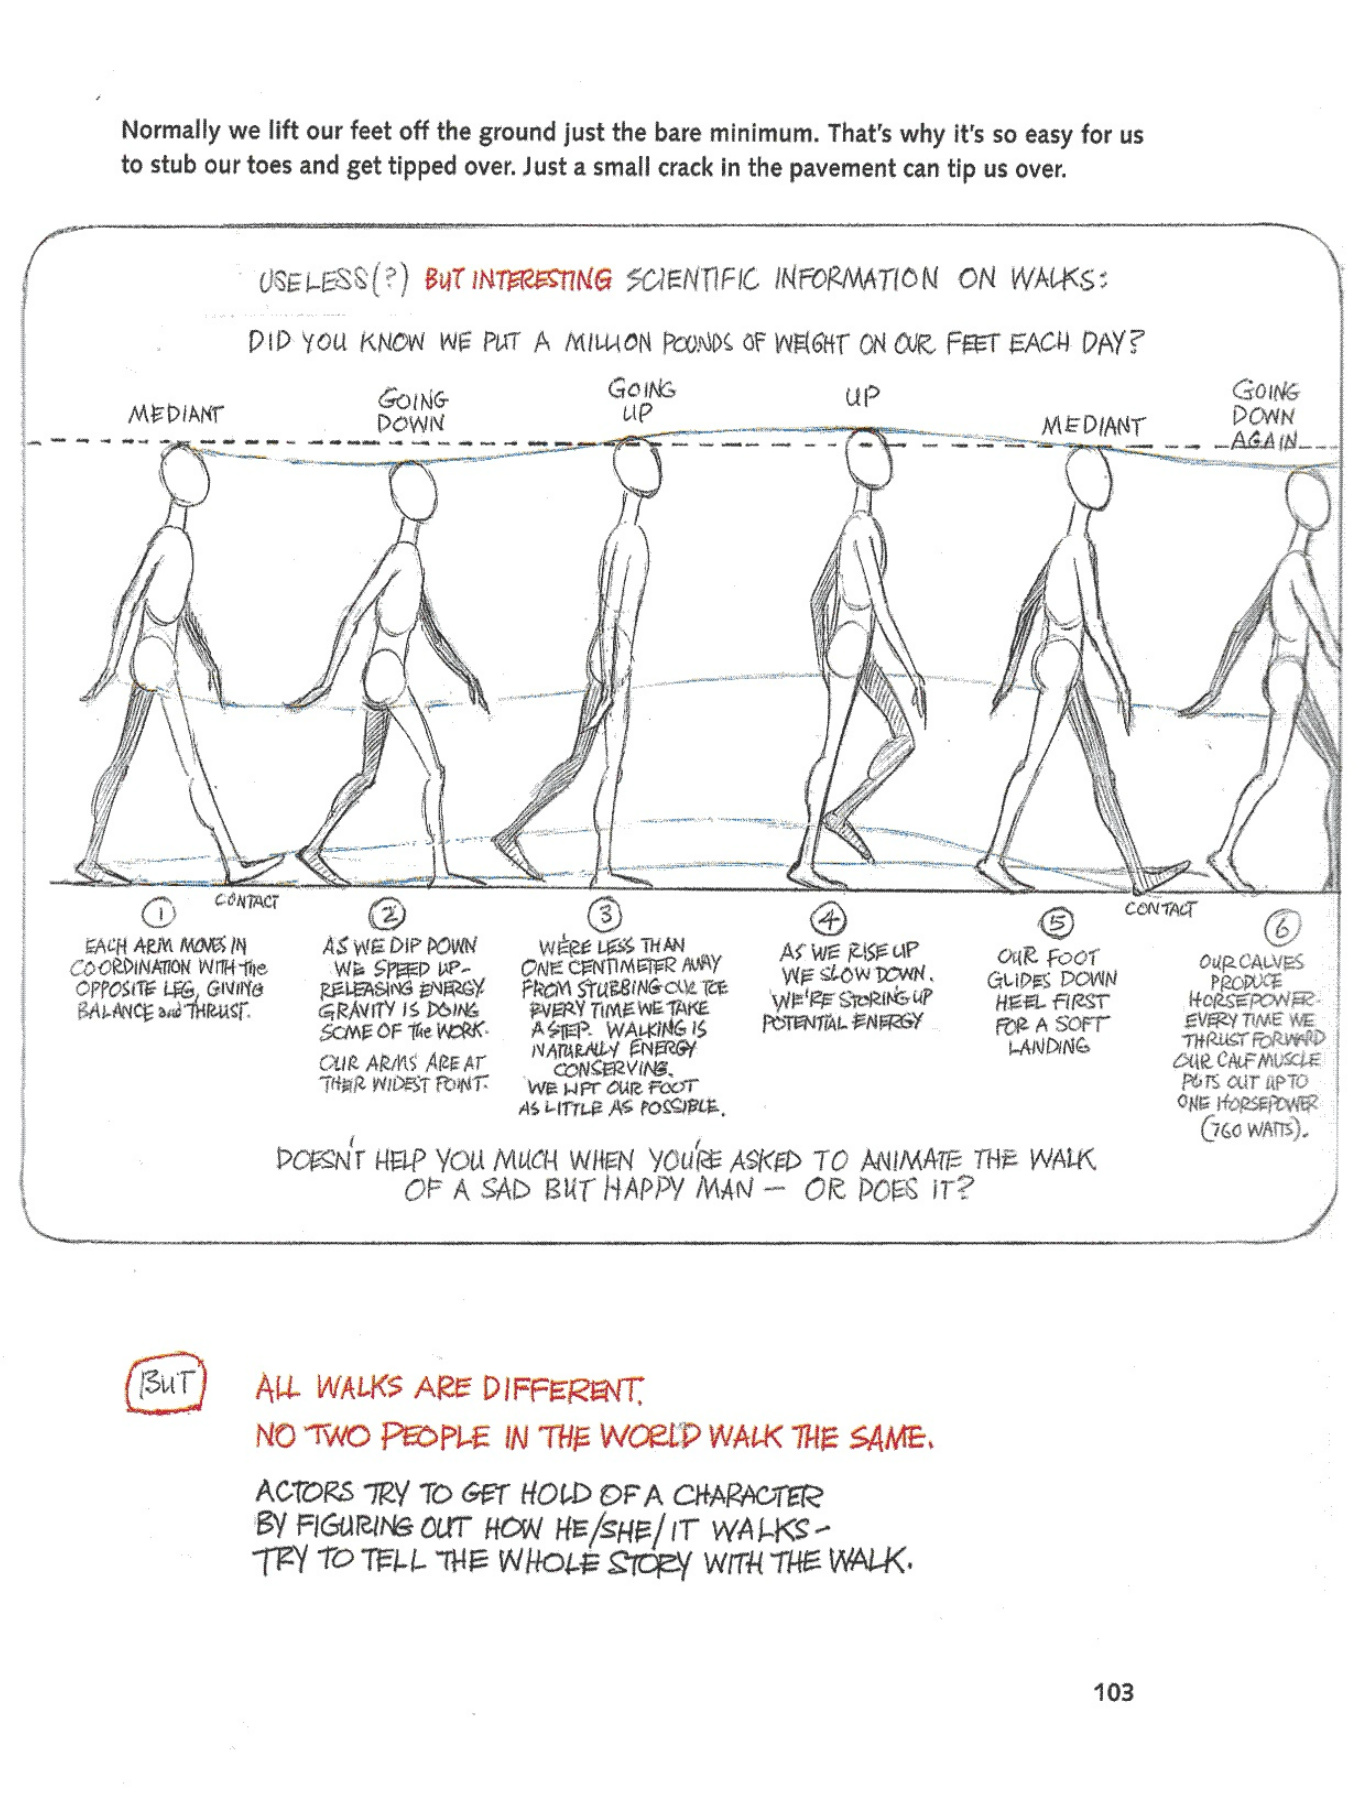 Normally we lift our feet off the ground just the bare minimum. That's why it's so easy for us
to stub our toes and get tipped over. Just a small crack in the pavement can tip us over.
USELESS(?) BUT INTERESTING SCIENTIFIC INFORMATION ON WALKS:
DID YOU KNOW WE PUT A MILLION POUNDS OF WEIGHT ON OUR FEET EACH DAY?
MEDIANT
GOING
DOWN
GOING
UP
UP
MEDIANT
GOING
DOWN
AGAIN
CONTACT
CONTACT
1
EACH ARM MOVES IN
COORDINATION WITH the
OPPOSITE LEG, GIVING
BALANCE and THRUST.
2
AS WE DIP DOWN
WE SPEED UP-
RELEASING ENERGY.
GRAVITY IS DOING
SOME OF the WORK.
OUR ARMS ARE AT
THEIR WIDEST POINT.
3
WE'RE LESS THAN
ONE CENTIMETER AWAY
FROM STUBBING OUR TOE
EVERY TIME WE TAKE
A STEP. WALKING IS
NATURALLY ENERGY
CONSERVING.
WE LIFT OUR FOOT
AS LITTLE AS POSSIBLE.
4
AS WE RISE UP
WE SLOW DOWN.
WE'RE STORING UP
POTENTIAL ENERGY
5
OUR FOOT
GLIDES DOWN
HEEL FIRST
FOR A SOFT
LANDING
6
OUR CALVES
PRODUCE
HORSEPOWER.
EVERY TIME WE
THRUST FORWARD
OUR CALF MUSCLE
PUTS OUT UP TO
ONE HORSEPOWER
(760 WATTS).
DOESN'T HELP YOU MUCH WHEN YOU'RE ASKED TO ANIMATE THE WALK
OF A SAD BUT HAPPY MAN – OR DOES IT?
BUT
ALL WALKS ARE DIFFERENT.
NO TWO PEOPLE IN THE WORLD WALK THE SAME.
ACTORS TRY TO GET HOLD OF A CHARACTER
BY FIGURING OUT HOW HE/SHE/IT WALKS –
TRY TO TELL THE WHOLE STORY WITH THE WALK.
103